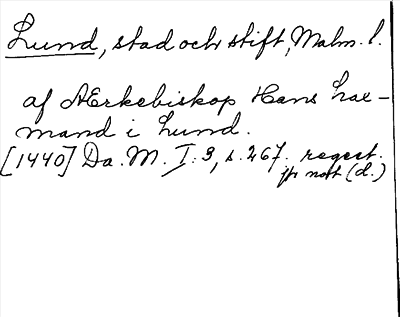 Lund, stad och stift, Malm. l.
af Ærkebiskop Hans Lax-
mand i Lund.
[1440] Da. M. I: 3, s. 267. regest.
jfr not (d.)